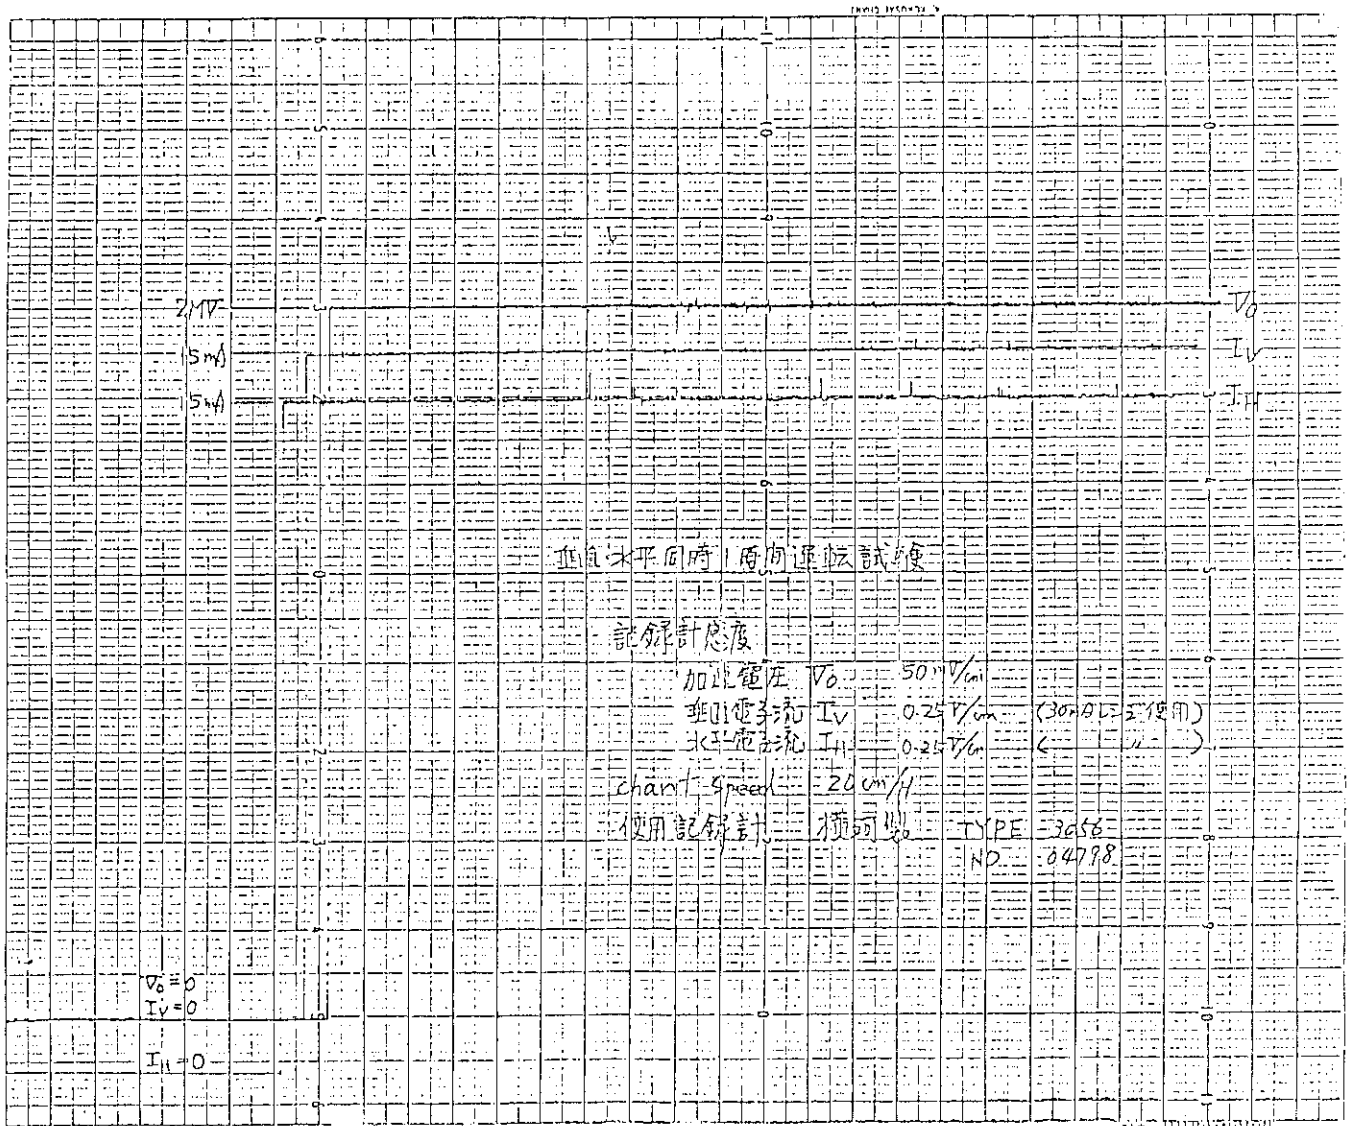 2MV
V₀
15mA
I_V
15mA
I_H
垂直水平同時1時間運転試験
記録計感度
加速電圧 V₀ 50mV/cm
垂直電子流 I_V 0.25V/cm (30mAレンヂ使用)
水平電子流 I_H 0.25V/cm ( 〃 )
chart speed 20cm/H
使用記録計 横河製 TYPE 3056
NO 04798
V₀=0
I_V=0
I_H=0